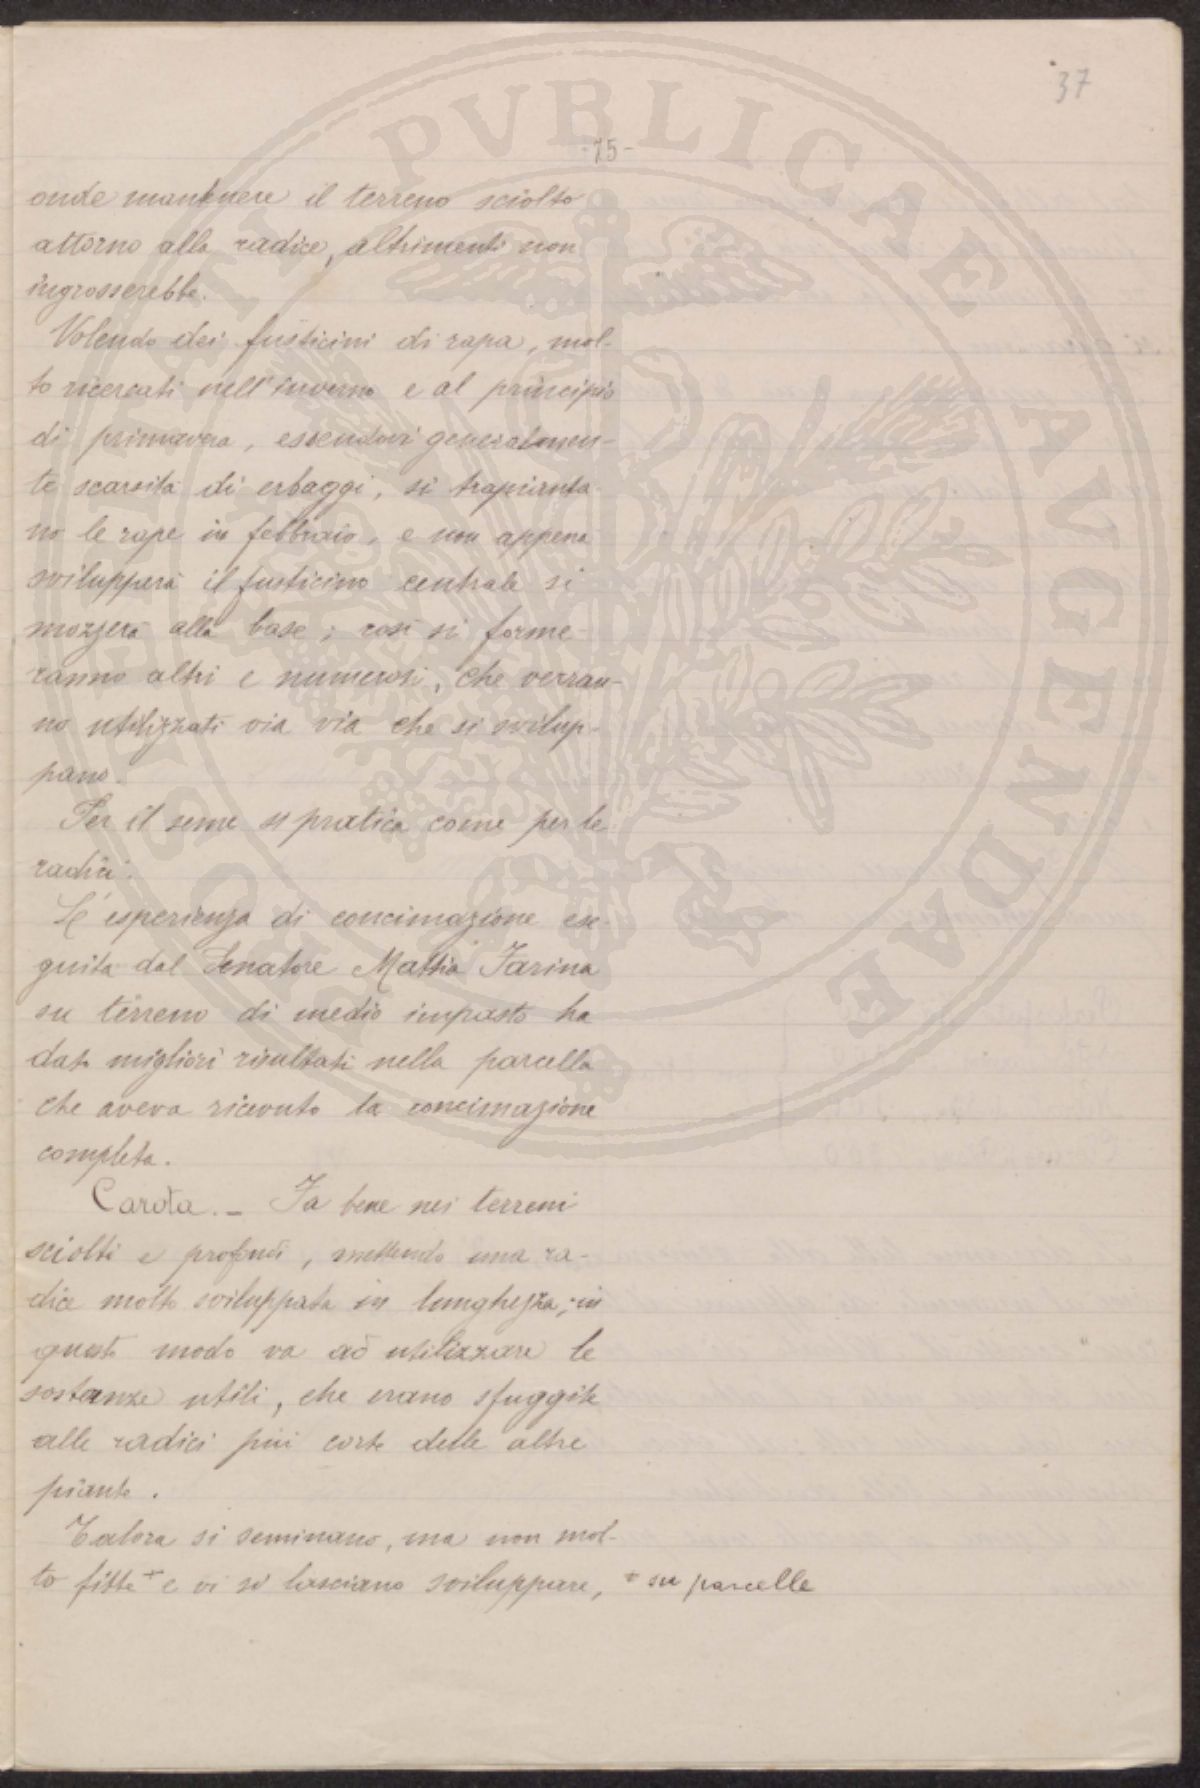 37
-75-
onde mantenere il terreno sciolto
attorno alla radice, altrimenti non
ingrosserebbe.
Volendo dei fusticini di rapa, mol-
to ricercati nell'inverno e al principio
di primavera, essendovi generalmen-
te scarsità di erbaggi, si trapianta-
no le rape in febbraio, e non appena
svilupperà il fusticino centrale si
mozzerà alla base; così si forme-
ranno altri e numerosi, che verran-
no utilizzati via via che si svilup-
pano.
Per il seme si pratica come per le
radici.
L'esperienza di concimazione ese-
guita dal Senatore Mattia Farina
su terreno di medio impasto ha
dato migliori risultati nella parcella
che aveva ricevuto la concimazione
completa.
Carota. - Fa bene nei terreni
sciolti e profondi, mettendo una ra-
dice molto sviluppata in lunghezza; in
questo modo va ad utilizzare le
sostanze utili, che erano sfuggite
alle radici più corte delle altre
piante.
Talora si seminano, ma non mol-
to fitte + e vi si lasciano sviluppare, + su parcelle
PUBLICAE AUGENDAE